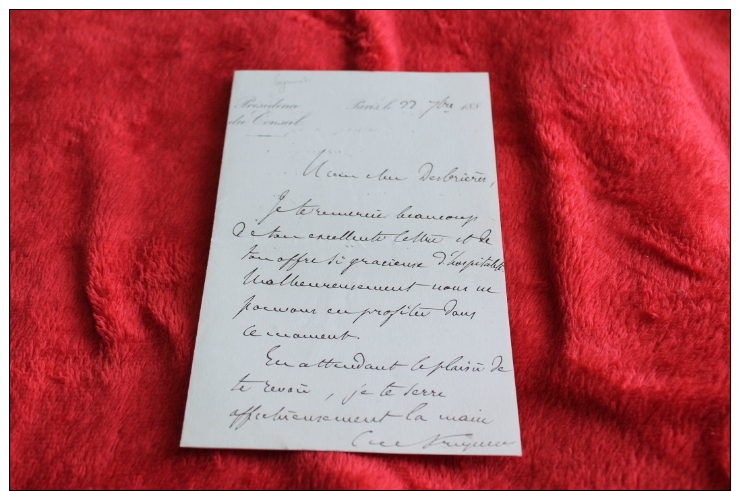 Présidence
du Conseil
Paris le 22 7bre 188
Mon cher Desbrières,
Je te remercie beaucoup
de ton excellente lettre et de
ton offre si gracieuse d'hospitalité
Malheureusement nous ne
pouvons en profiter dans
ce moment.
En attendant le plaisir de
te revoir, je te serre
affectueusement la main